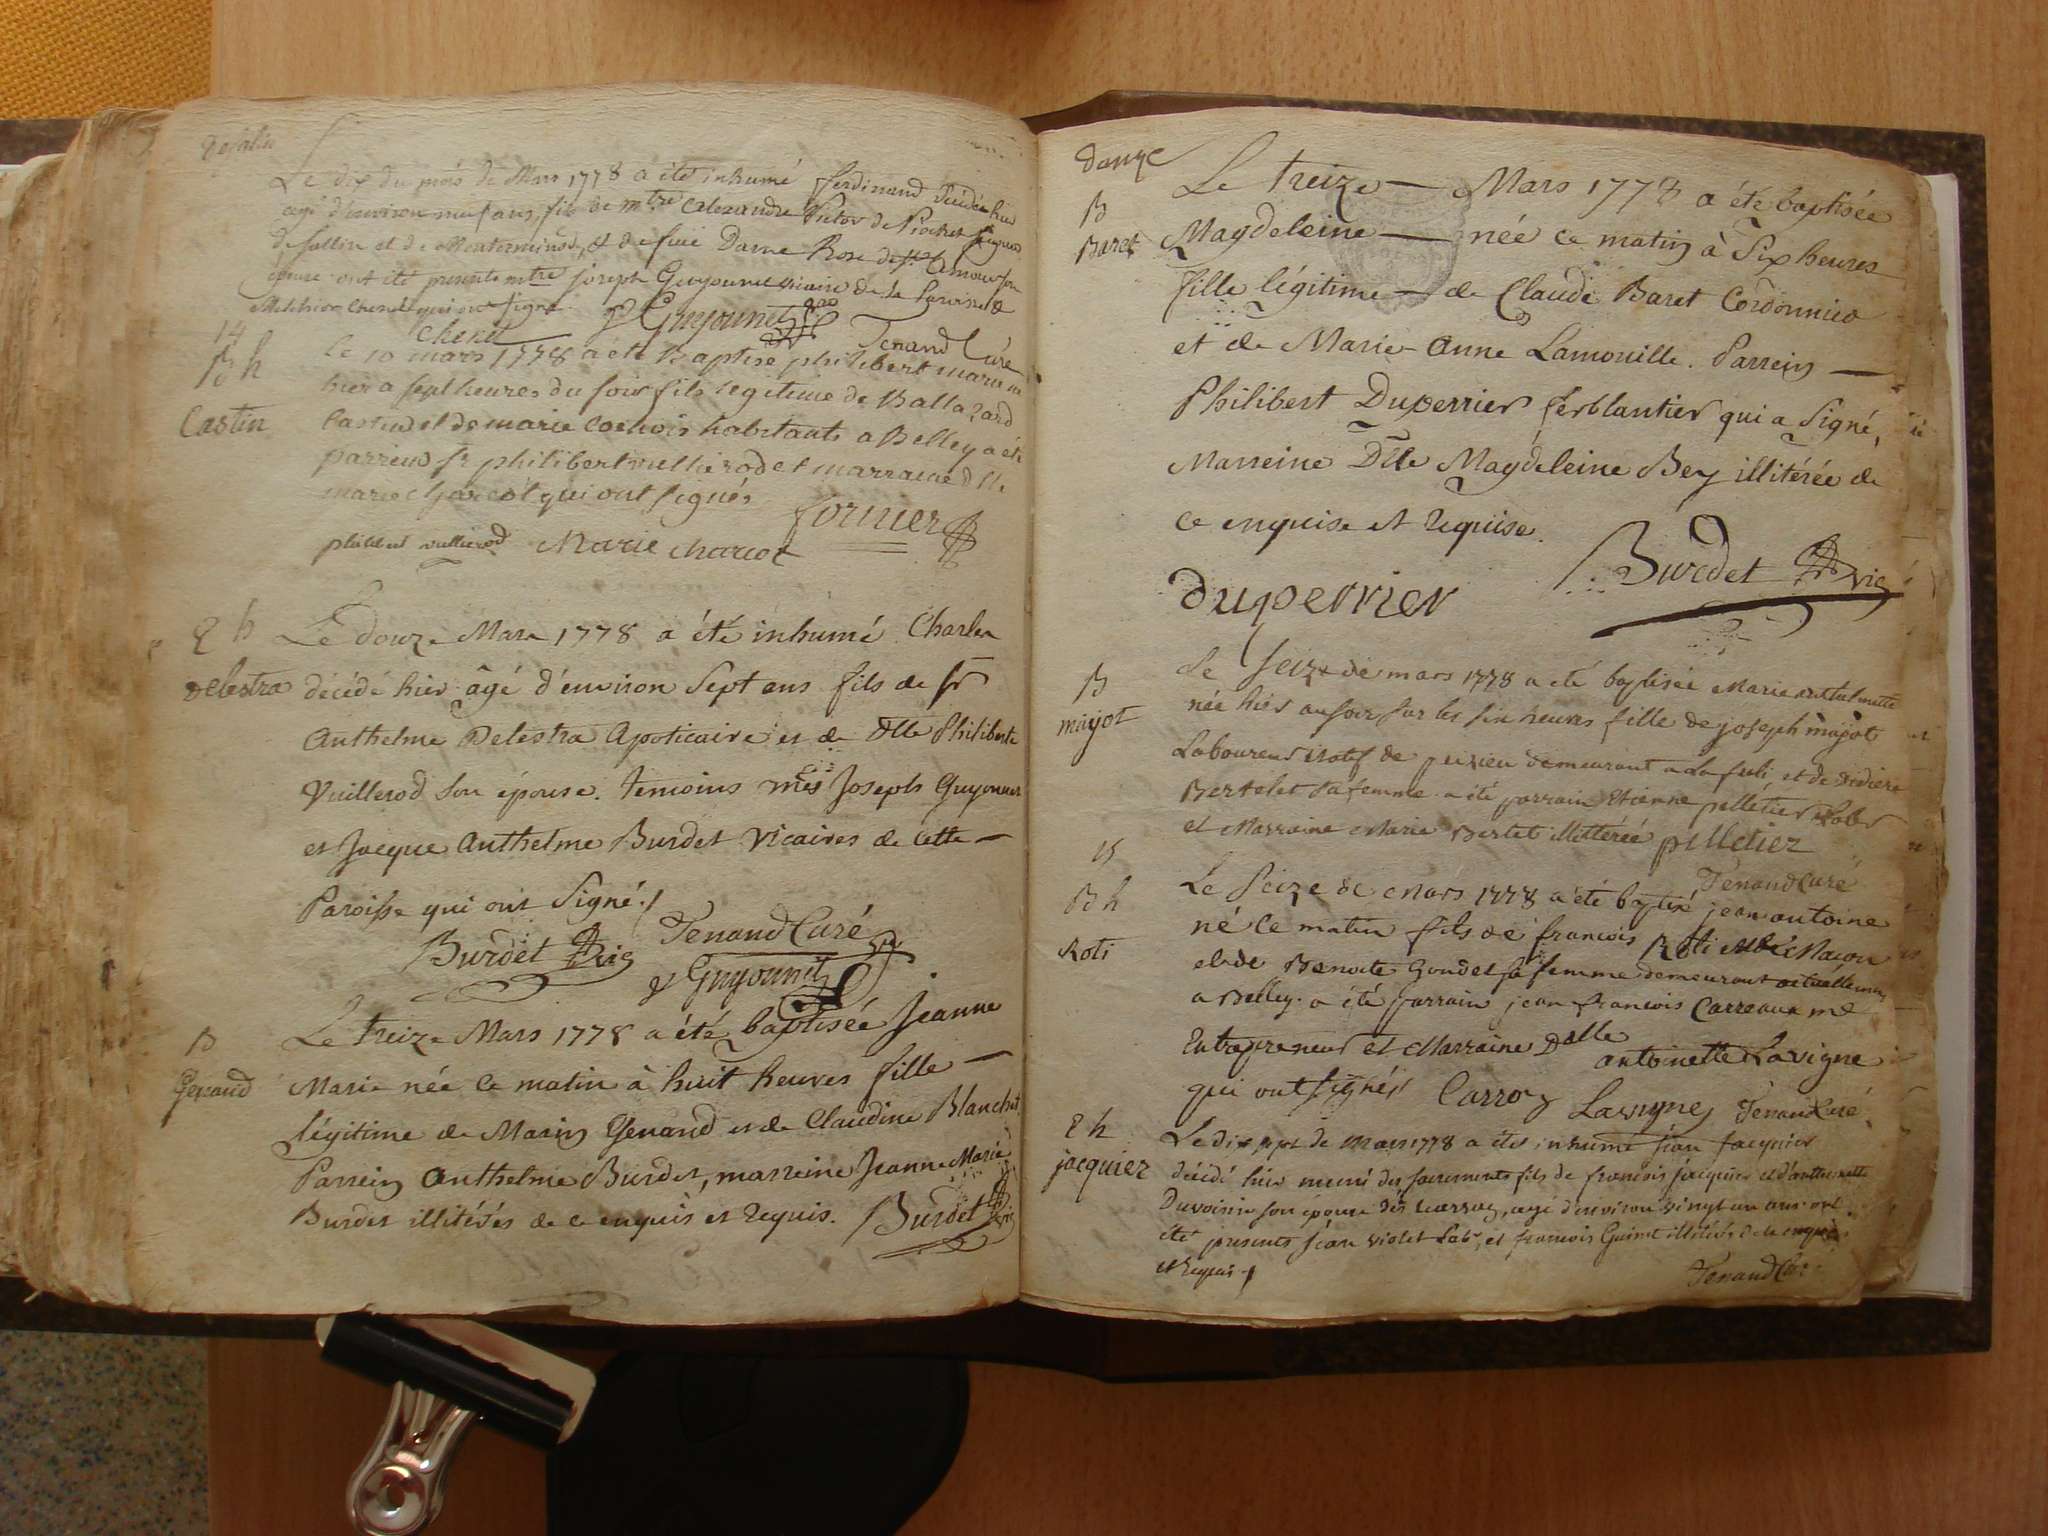 Le dix du mois de Mars 1778 a été inhumé ferdinand décédé hier
agé d'environ neuf ans, fils de mtre Alexandre Victor de Seigneur
de sallin et de & de feüe Dame Rose
épouse ont été présents mtre joseph Guyonnet vicaire de la Paroisse &
Melchior qui ont signé
Guyonnet
Tenand Curé
14
B h
Castin
le 10 mars 1778 a été Baptisé philibert marie né
hier a sept heures du soir fils legitime de Baltazard
Castin et de marie cochois habitants a Belley a été
parrein sr philibert vullierod et marraine dlle
marie charcot qui ont signés
fornier
philibert vullierod Marie charcot
8 h
Delestra
Le douze Mars 1778 a été inhumé Charles
décédé hier âgé d'environ Sept ans fils de sr
Anthelme Delestra Apoticaire et de Dlle Philiberte
Vuillerod son épouse. temoins mes Joseph Guyonnet
et Jacque Anthelme Burdet Vicaires de cette —
Paroisse qui ont Signé./
Burdet vic Tenand Curé
Guyonnet
B
Genand
Le treize Mars 1778 a été baptisée Jeanne
Marie née ce matin à huit heures fille —
légitime de Marin Genand et de Claudine Blanchet
Parrein Anthelme Burdet, marreine Jeanne Marie
Burdet illitérés de ce enquis et requis. Burdet vic
donze
B
Baret
Le treize — Mars 1778 a été baptisée
Magdeleine — née ce matin à Six heures
fille légitime — de Claude Baret Cordonnier
et de Marie Anne Lamouille. Parrein —
Philibert Duperrier ferblantier qui a Signé,
Marreine Dlle Magdeleine Bey illitérée de
ce enquise et requise.
Burdet vic
duperrier
B
majot
Le seize de mars 1778 a été baptisée Marie
née hier au soir sur les six heures fille de joseph majot
Laboureur natif de demeurant a et de
Bertelet sa femme a été parrain Etienne pelletier Labr
et Marraine Marie Bertet illitérée pelletier
Tenand Curé
15
B h
Roti
Le Seize de mars 1778 a été baptisé jean antoine
né ce matin fils de francois Roti Maçon
et de Benoite Goudet sa femme demeurant actuellement
a Belley. a été parrain jean francois Carreaux md
Entrepreneur et Marraine Dlle antoinette Lavigne
qui ont signés Carroz Lavigne Tenand Curé
8 h
jacquier
Le dix sept de Mars 1778 a été inhumé jean jacquier
décédé hier muni des sacrements fils de francois jacquier et d'anthelmette
Duvoisin son épouse agé d'environ vingt un ans ont
été présents jean Violet Labr, et francois Guinet illitérés de ce enquis
et requis.
Tenand Curé